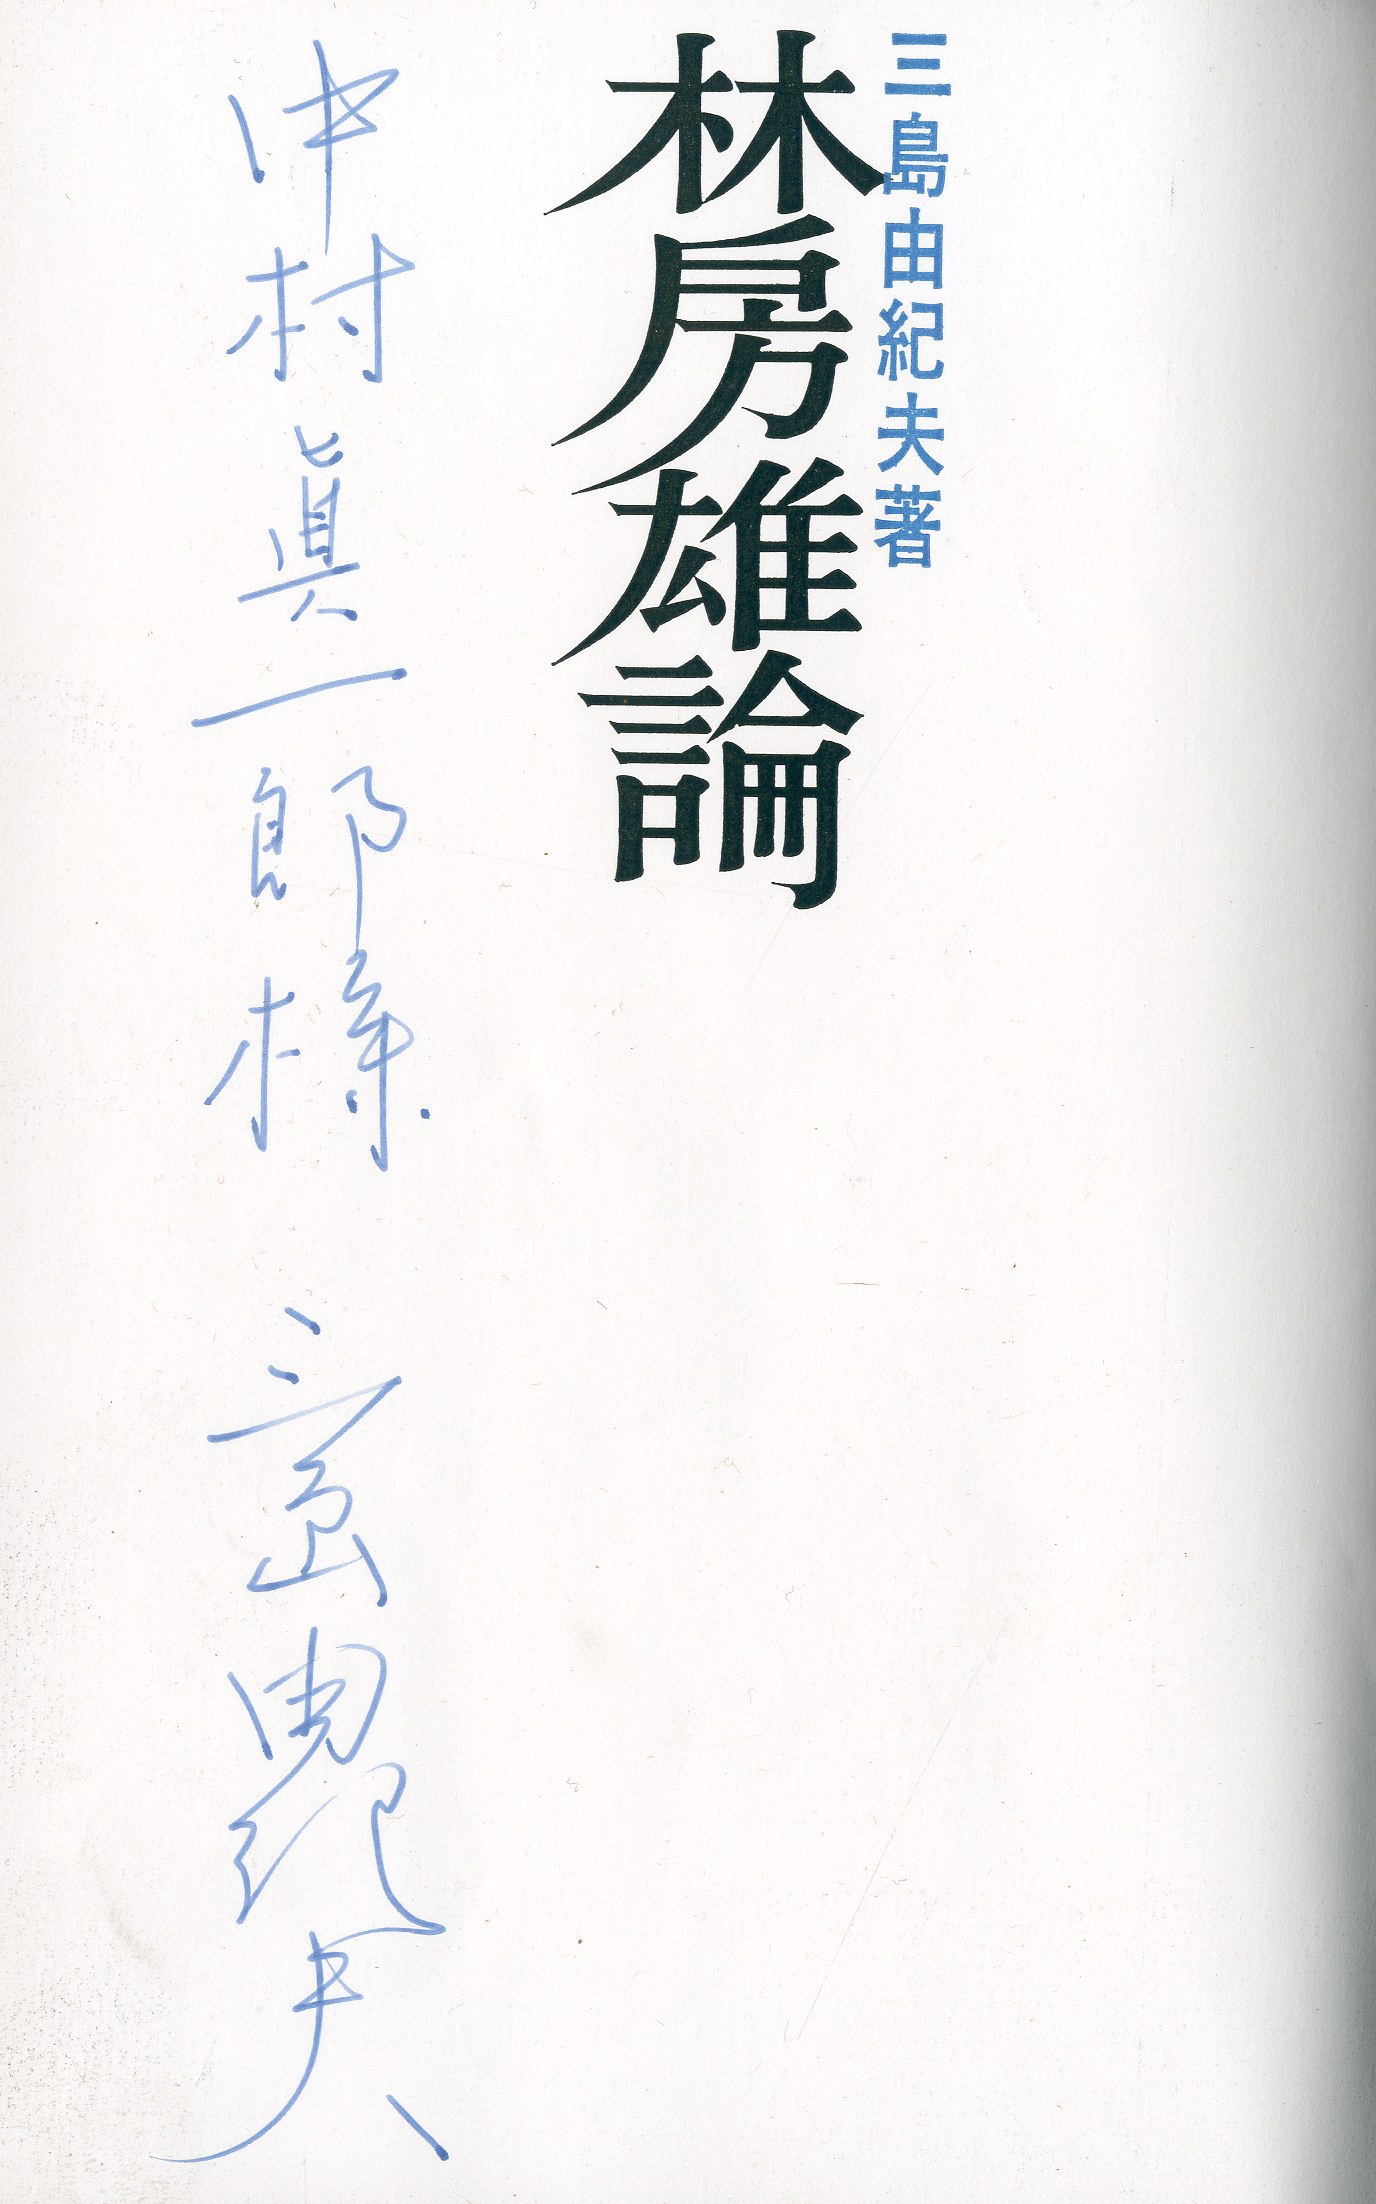 三島由紀夫著
林房雄論
中村眞一郎様 三島由紀夫